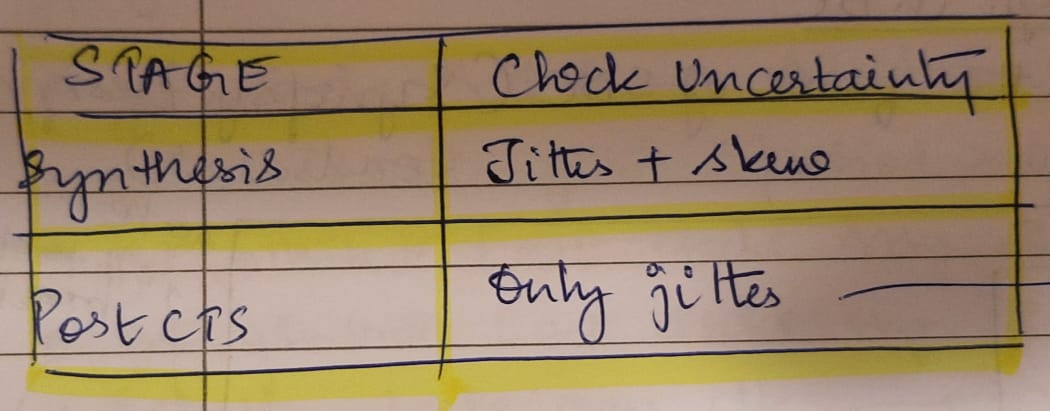 STAGE Clock Uncertainty
Synthesis Jitter + skew
Post CTS Only jitter